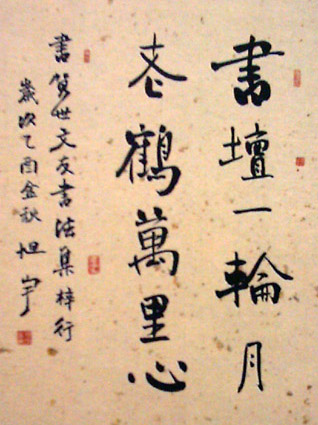 書壇一輪月
老鶴萬里心
書賀世文友書法集梓行
歲次乙酉金秋 恒宇